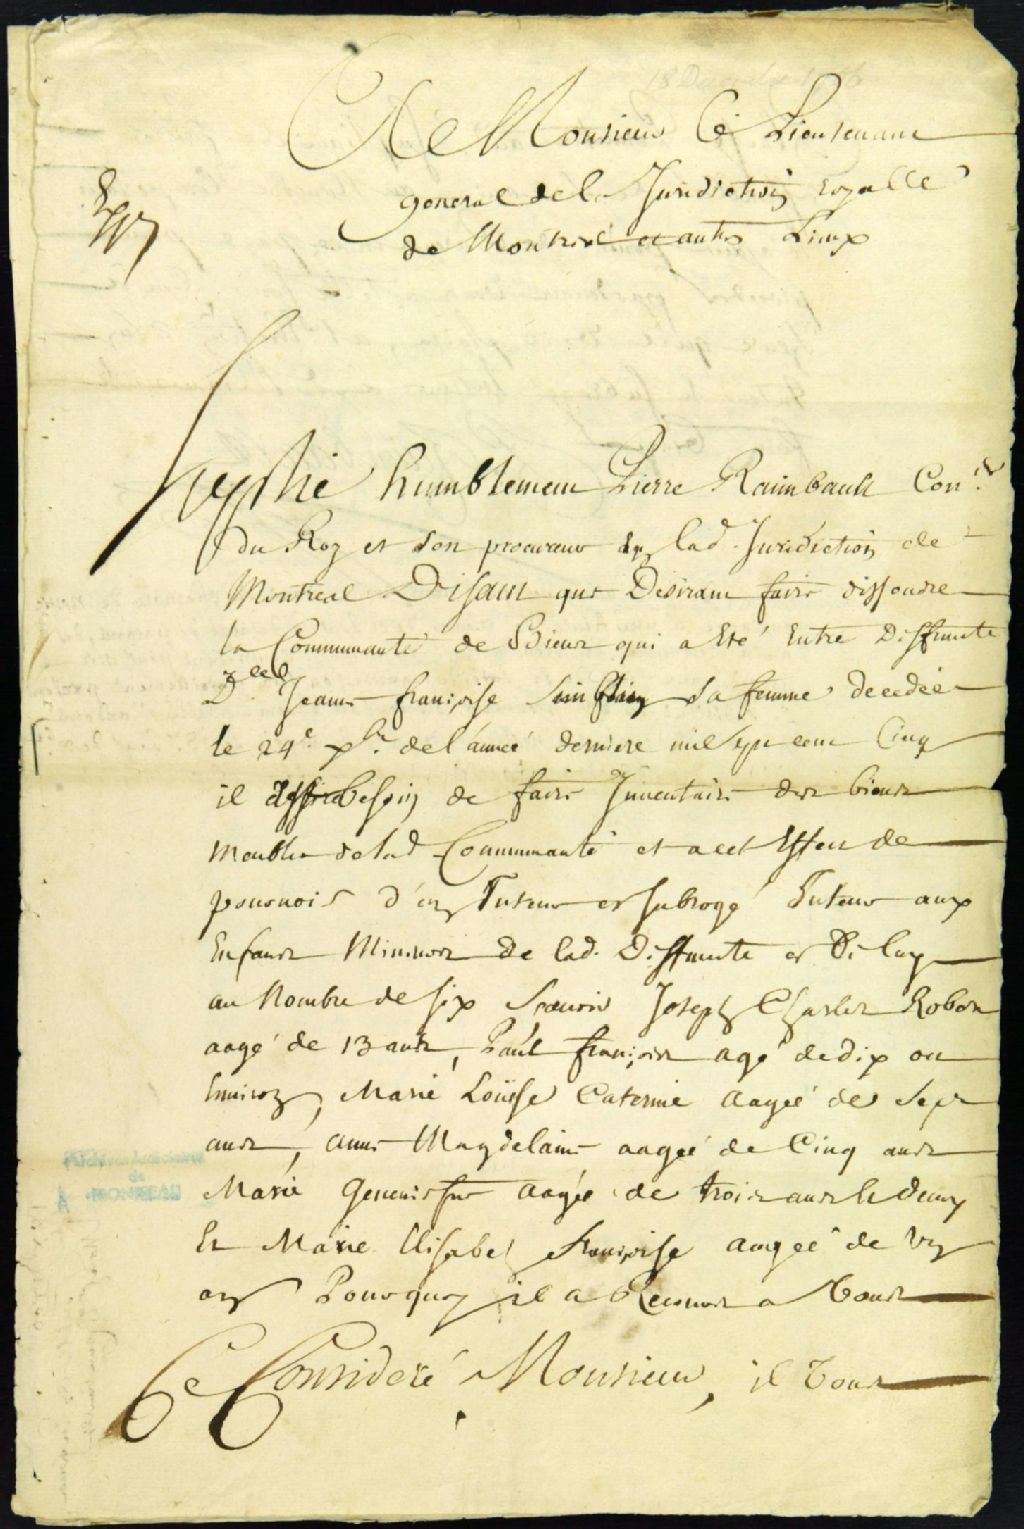 A Monsieur Le Lieutenant
general de la Juridiction royalle
de Montreal et autres Lieux
Supplie humblement Pierre Raimbault Con.er
du Roy et son procureur En lad. Juridiction de
Montreal Disant que Desirant faire dissoudre
la Communauté de Biens qui a Eté Entre Deffunte
D.elle Jeanne françoise Simblin sa femme decedée
le 29e. xbre. de l'année derniere mil sept cent Cinq
il besoin de faire Inventaire des biens
Meubles de lad. Communauté et a cet Effet de
pourvoir d'un Tuteur et subrogé Tuteur aux
Enfans Mineurs De lad. Deffunte et De luy
au Nombre de six Scavoir Joseph Charles Robert
aagé de 13 ans, Paul françois agé de dix ou
Environ, Marie Loüise Caterine aagée de Sept
ans, anne Magdelaine aagée de Cinq ans
Marie Geneviefve aagée de trois ans et demy
Et Marie Elisabet françoise aagée de un
an Pourquoy il a Recours a Vous
Ce Consideré Monsieur, il Vous